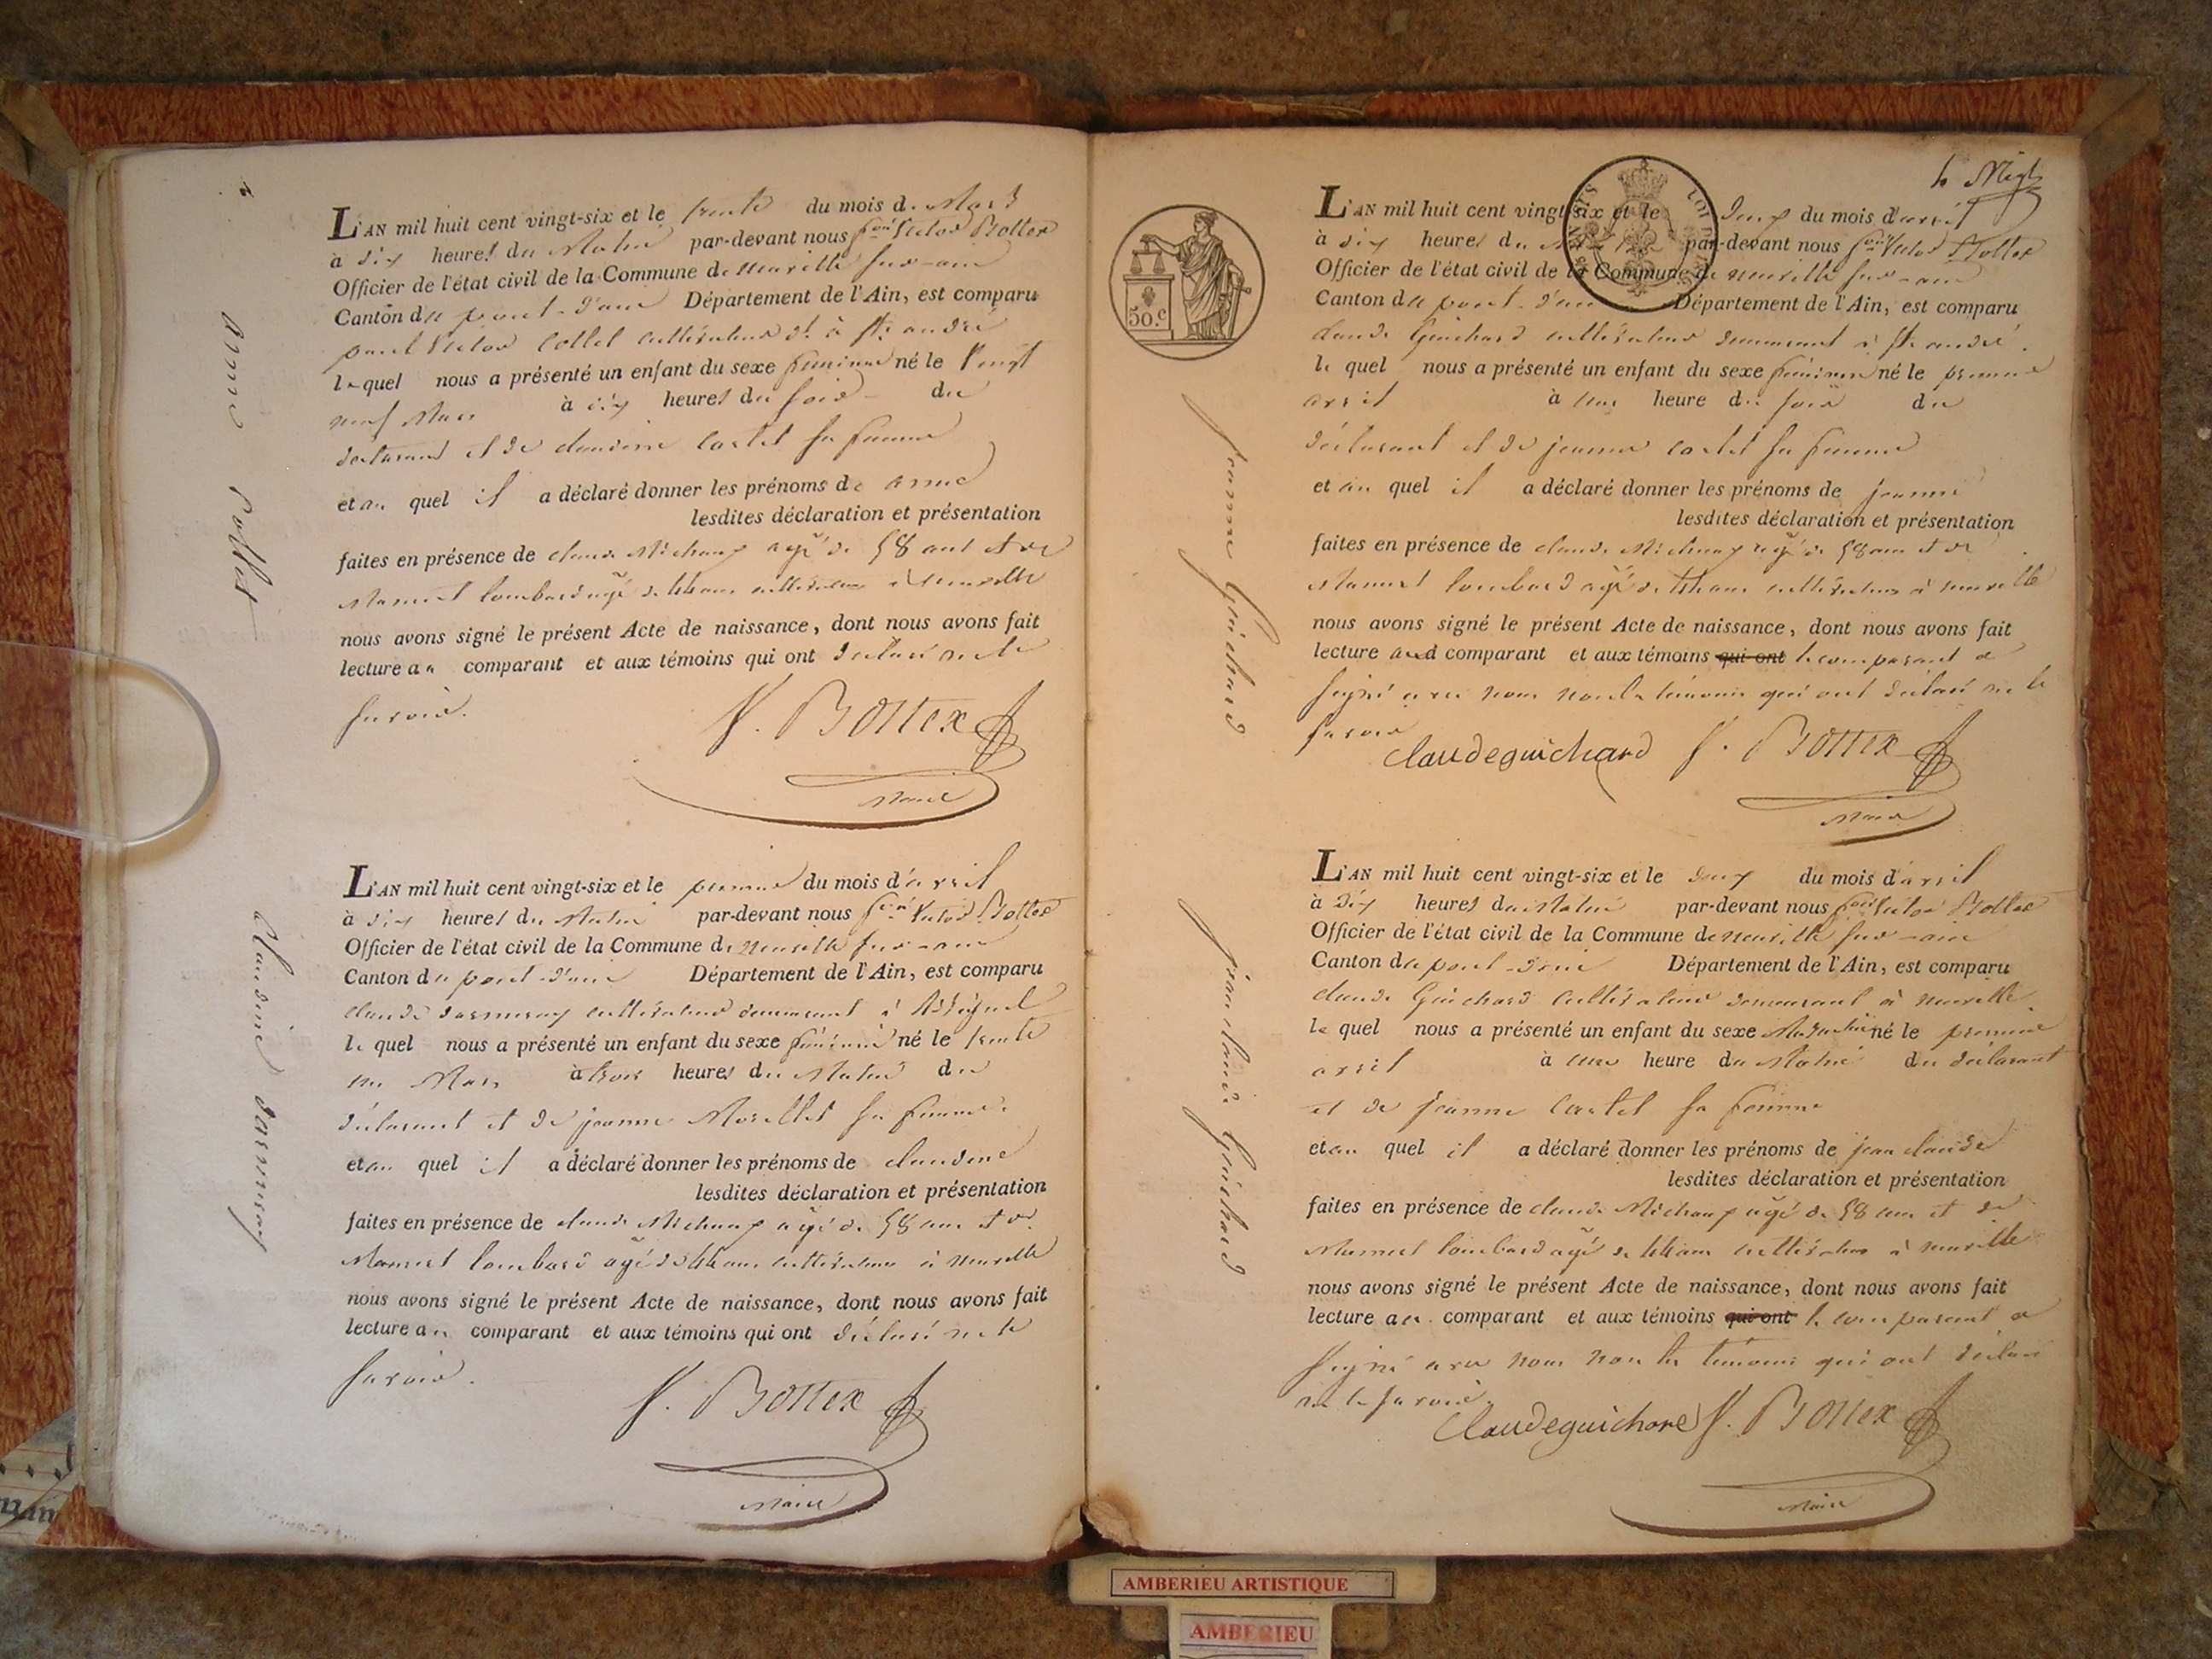 anne Collet
L'AN mil huit cent vingt-six et le trente du mois de Mars
à dix heures du Matin par-devant nous fçois Victor Bottex
Officier de l'état civil de la Commune de neuville sur-ain
Canton du pont-d'ain Département de l'Ain, est comparu
paul Victor Collet cultivateur dt à St andré
lequel nous a présenté un enfant du sexe féminin né le Vingt
neuf Mars à dix heures du soir du
déclarant et de claudine Cartet sa femme
et au quel il a déclaré donner les prénoms de anne
lesdites déclaration et présentation
faites en présence de claude Michaux agé de 58 ans et de
Manuel lombard agé de 44 ans cultivateurs à neuville
nous avons signé le présent Acte de naissance, dont nous avons fait
lecture au comparant et aux témoins qui ont déclaré ne le
savoir.
V. Bottex
Maire
Claudine darmeray
L'AN mil huit cent vingt-six et le premier du mois d'avril
à dix heures du Matin par-devant nous fçois Victor Bottex
Officier de l'état civil de la Commune de neuville sur-ain
Canton du pont-d'ain Département de l'Ain, est comparu
claude darmeray cultivateur demeurant à
le quel nous a présenté un enfant du sexe féminin né le trente
un Mars à trois heures du Matin du
déclarant et de jeanne Morellet sa femme
et au quel il a déclaré donner les prénoms de claudine
lesdites déclaration et présentation
faites en présence de claude Michaux agé de 58 ans et de
Manuel lombard agé de 44 ans cultivateurs à neuville
nous avons signé le présent Acte de naissance, dont nous avons fait
lecture au comparant et aux témoins qui ont déclaré ne le
savoir.
V. Bottex
Maire
50.c
jeanne Guichard
L'AN mil huit cent vingt-six et le deux du mois d'avril
à dix heures du par-devant nous fçois Victor Bottex
Officier de l'état civil de la Commune de neuville sur-ain
Canton du pont-d'ain Département de l'Ain, est comparu
claude Guichard cultivateur demeurant à St andré
le quel nous a présenté un enfant du sexe féminin né le premier
avril à une heure du soir du
déclarant et de jeanne cartet sa femme
et au quel il a déclaré donner les prénoms de jeanne
lesdites déclaration et présentation
faites en présence de claude Michaux agé de 58 ans et de
Manuel lombard agé de 44 ans cultivateurs à neuville
nous avons signé le présent Acte de naissance, dont nous avons fait
lecture aud comparant et aux témoins qui ont le comparant a
signé avec nous non les témoins qui ont déclaré ne le
savoir
Claudeguichard V. Bottex
Maire
jean claude Guichard
L'AN mil huit cent vingt-six et le deux du mois d'avril
à dix heures du Matin par-devant nous fçois Victor Bottex
Officier de l'état civil de la Commune de neuville sur-ain
Canton du pont-d'ain Département de l'Ain, est comparu
claude Guichard cultivateur demeurant à neuville
le quel nous a présenté un enfant du sexe Masculin né le premier
avril à une heure du Matin du déclarant
et de jeanne Cartet sa femme
et au quel il a déclaré donner les prénoms de jean claude
lesdites déclaration et présentation
faites en présence de claude Michaux agé de 58 ans et de
Manuel lombard agé de 44 ans cultivateurs à neuville
nous avons signé le présent Acte de naissance, dont nous avons fait
lecture au comparant et aux témoins qui ont le comparant a
signé avec nous non les témoins qui ont déclaré
ne le savoir.
Claudeguichard V. Bottex
Maire
AMBERIEU ARTISTIQUE
AMBERIEU